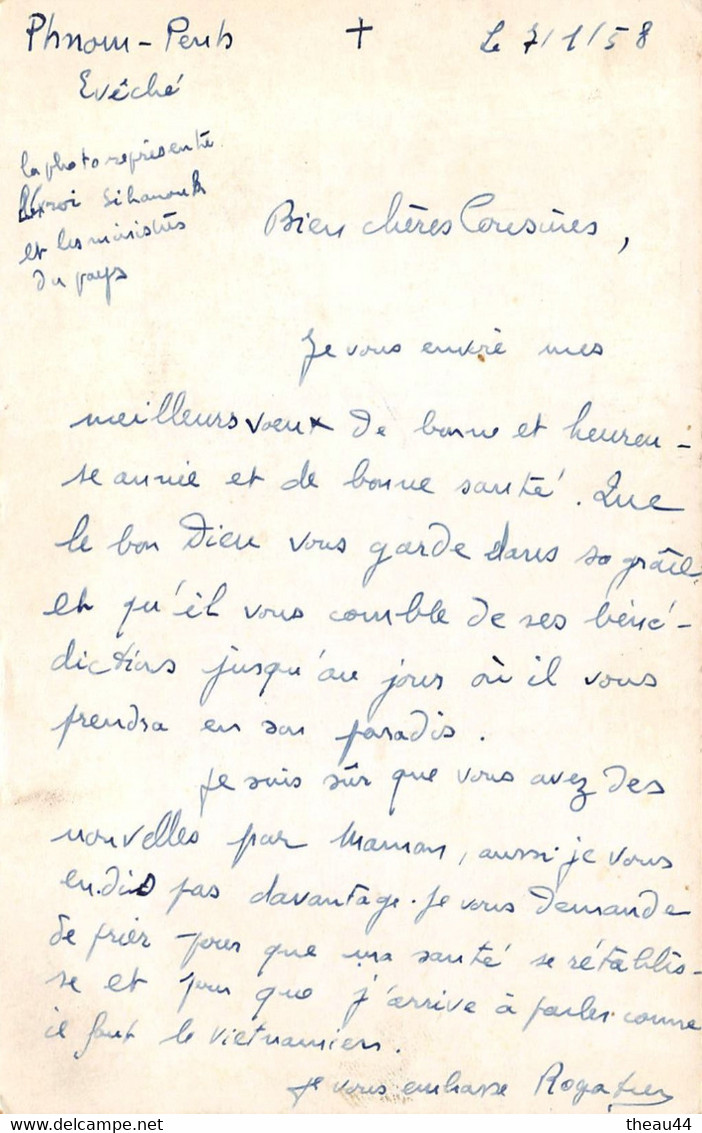 Phnom-Penh + le 7/1/58
Evêché
la photo représente
le roi Sihanouk
et les ministres
du pays
Bien chères Cousines,
Je vous envoie mes
meilleurs voeux de bonne et heureu-
se année et de bonne santé. Que
le bon Dieu vous garde dans sa grâce
et qu'il vous comble de ses béné-
dictions jusqu'au jour où il vous
prendra en son paradis.
Je suis sûr que vous avez des
nouvelles par Maman, aussi je vous
en dis pas davantage. Je vous demande
de prier pour que ma santé se rétablis-
se et pour que j'arrive à parler comme
il faut le vietnamien.
Je vous embrasse Rogatien
theau44